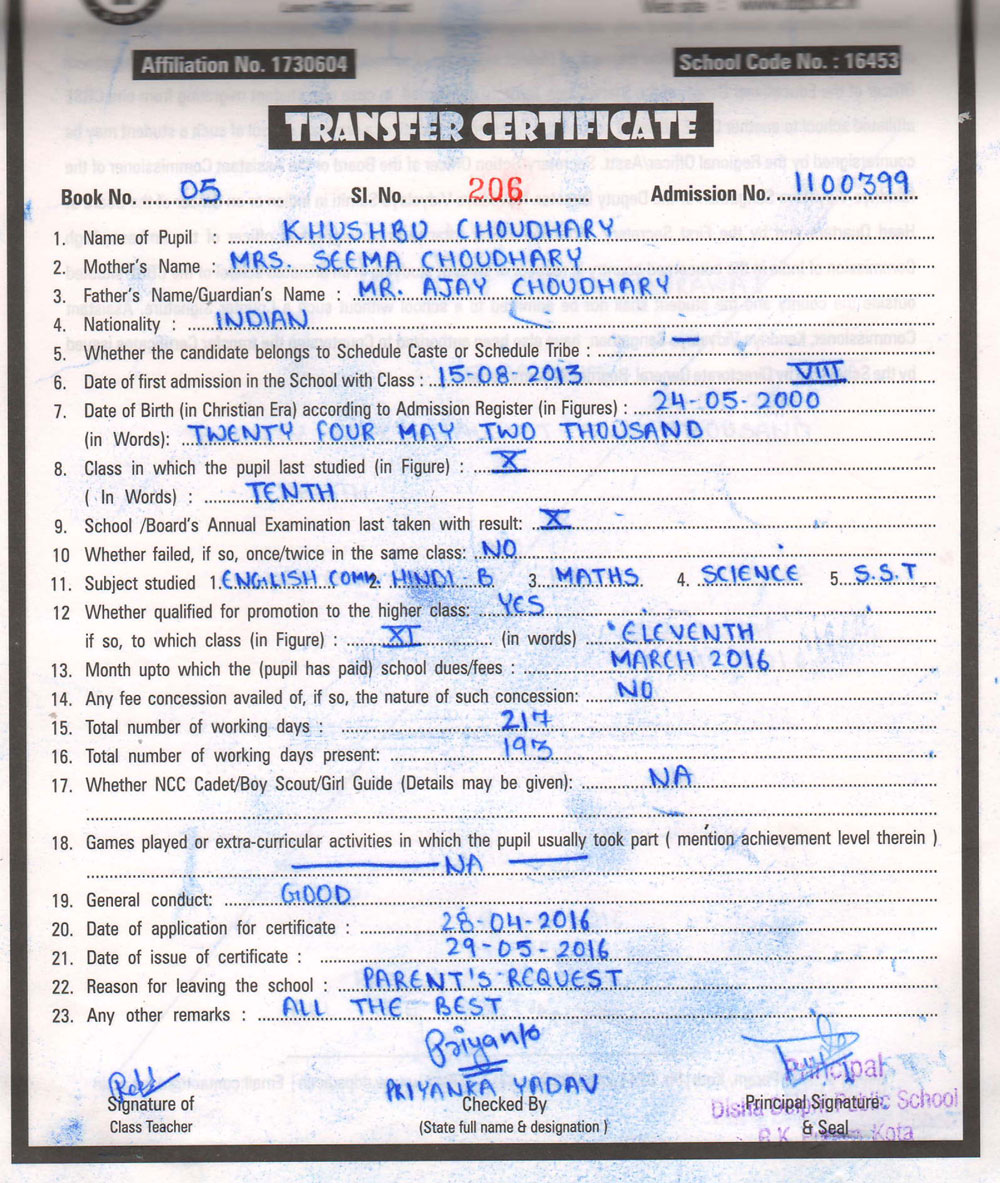 Affiliation No. 1730604 School Code No. : 16453
TRANSFER CERTIFICATE
Book No. 05 Sl. No. 206 Admission No. 1100399
1. Name of Pupil : KHUSHBU CHOUDHARY
2. Mother's Name : MRS. SEEMA CHOUDHARY
3. Father's Name/Guardian's Name : MR. AJAY CHOUDHARY
4. Nationality : INDIAN
5. Whether the candidate belongs to Schedule Caste or Schedule Tribe : —
6. Date of first admission in the School with Class : 15-08-2013 VIII
7. Date of Birth (in Christian Era) according to Admission Register (in Figures) : 24-05-2000
(in Words): TWENTY FOUR MAY TWO THOUSAND
8. Class in which the pupil last studied (in Figure) : X
( In Words) : TENTH
9. School /Board's Annual Examination last taken with result: X
10 Whether failed, if so, once/twice in the same class: NO
11. Subject studied 1. ENGLISH COMM. 2. HINDI-B 3. MATHS 4. SCIENCE 5. S.S.T
12 Whether qualified for promotion to the higher class: YES
if so, to which class (in Figure) : XI (in words) ELEVENTH
13. Month upto which the (pupil has paid) school dues/fees : MARCH 2016
14. Any fee concession availed of, if so, the nature of such concession: NO
15. Total number of working days : 217
16. Total number of working days present: 193
17. Whether NCC Cadet/Boy Scout/Girl Guide (Details may be given): NA
18. Games played or extra-curricular activities in which the pupil usually took part ( mention achievement level therein )
— NA —
19. General conduct: GOOD
20. Date of application for certificate : 28-04-2016
21. Date of issue of certificate : 29-05-2016
22. Reason for leaving the school : PARENT'S REQUEST
23. Any other remarks : ALL THE BEST
Priyanka
PRIYANKA YADAV
Principal
Signature of Checked By Principal Signature
Disha Delphi Public School
Class Teacher (State full name & designation ) & Seal
Kota